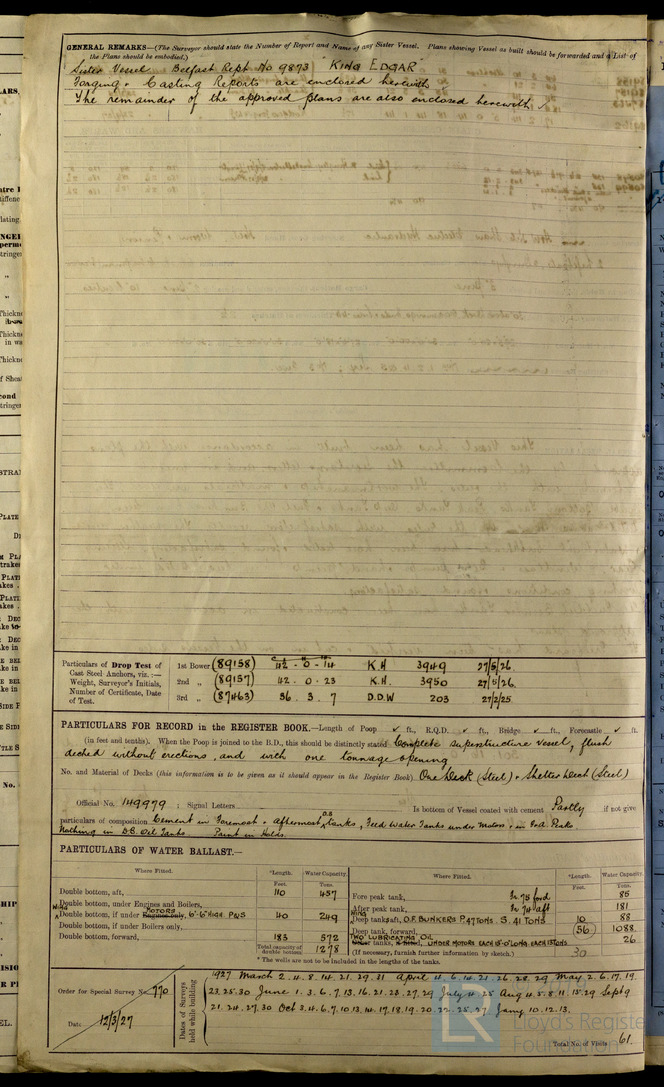 GENERAL REMARKS—(The Surveyor should state the Number of Report and Name of any Sister Vessel. Plans showing Vessel as built should be forwarded and a List of
the Plans should be embodied.)
Sister Vessel Belfast Rept No 9873 "KING EDGAR"
Forging & Casting Reports are enclosed herewith
The remainder of the approved plans are also enclosed herewith
Particulars of Drop Test of
Cast Steel Anchors, viz.:—
Weight, Surveyor's Initials,
Number of Certificate, Date
of Test.
1st Bower (89158) 42-0-14 K.H 3949 27/5/26.
2nd „ (89157) 42.0.23 K.H. 3950 27/5/26
3rd „ (87463) 36.3.7 D.D.W 203 27/2/25
PARTICULARS FOR RECORD in the REGISTER BOOK.—Length of Poop ft., R.Q.D. ft., Bridge ft., Forecastle ft.
(in feet and tenths). When the Poop is joined to the B.D., this should be distinctly stated Complete Superstructure Vessel, flush
decked without erections, and with one tonnage opening
No. and Material of Decks (this information is to be given as it should appear in the Register Book) One Deck (Steel) & Shelter Deck (Steel)
Official No. 149979 ; Signal Letters Is bottom of Vessel coated with cement Partly if not give
particulars of composition Cement in Foremost & Aftermost D.B tanks, Feed Water Tanks under Motors & in F&A Peaks.
Nothing in D.B. Oil Tanks. Paint in Holds.
PARTICULARS OF WATER BALLAST.—
Where Fitted. *Length. Water Capacity. Where Fitted. *Length. Water Capacity.
Feet. Tons. Feet. Tons.
Double bottom, aft, 110 457
Double bottom, under Engines and Boilers,
WING Double bottom, if under Engines only, MOTORS 6'-6" HIGH P&S 40 249
Double bottom, if under Boilers only,
Double bottom, forward, 183 572
Total capacity of double bottom 1278
Fore peak tank, 85
After peak tank, 181
WING Deep tank, aft, O.F. BUNKERS P.47 TONS S.41 TONS 10 88
Deep tank, forward, (56) 1088
TWO LUBRICATING OIL tanks, UNDER MOTORS EACH 15'-0" LONG. EACH 13 TONS 26
(If necessary, furnish further information by sketch.) 30
* The wells are not to be included in the lengths of the tanks.
Order for Special Survey No. 770
Date 12/3/27
Dates of Surveys held while building
1927 March 2.4.8.14.21.29.31 April 4.6.14.21.26.28.29 May 2.6.17.19.
23.25.30 June 1.3.6.7.13.16.21.23.27.29 July 4.25 Aug 4.5.8.11.15.29 Sept 9
21.24.27.30 Oct 3.4.6.7.10.13.14.17.18.19.20.22.25.27. Jany 10.12.13.
Total No. of Visits 61.
LR
Lloyd's Register
Foundation